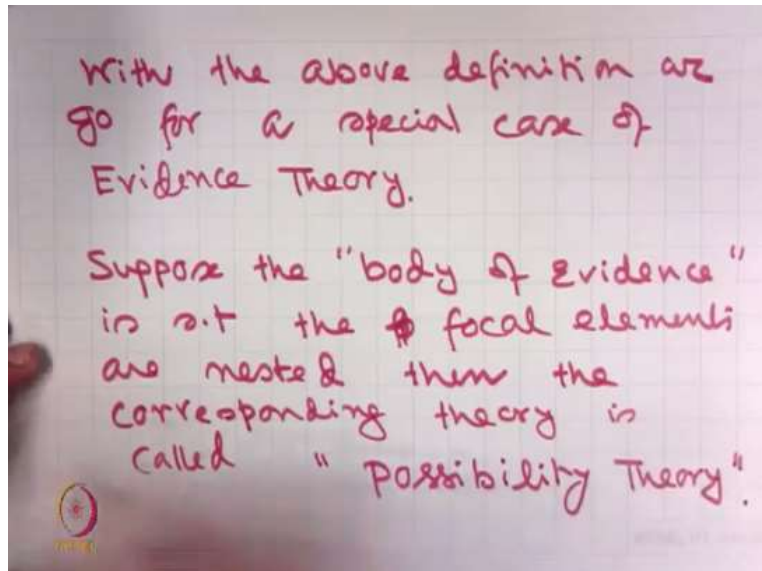 With the above definition we
go for a special case of
Evidence Theory.
Suppose the "body of Evidence"
is s.t the focal elements
are nested then the
corresponding theory is
called " Possibility Theory".
NPTEL